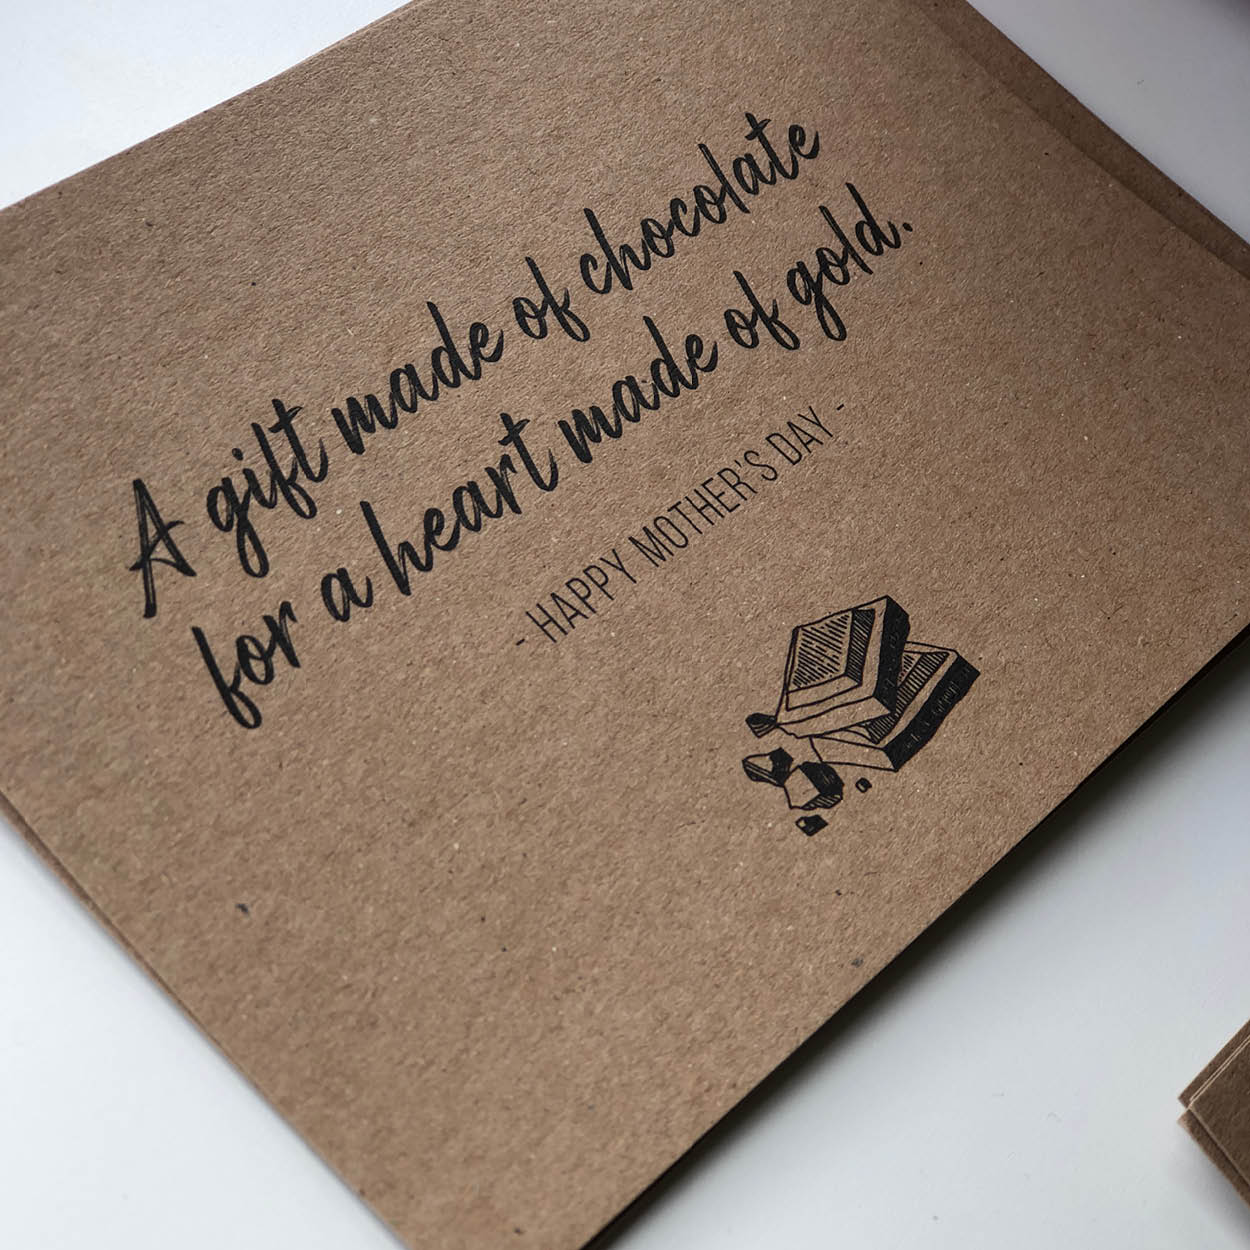 A gift made of chocolate
for a heart made of gold.
- HAPPY MOTHER'S DAY -